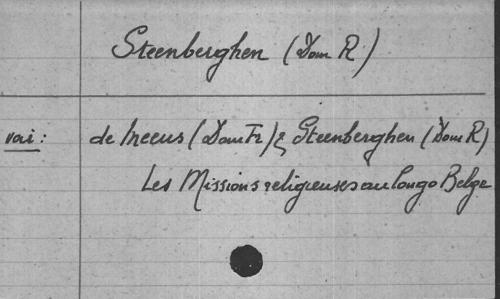 Steenberghen (Dom R)
voir: de Meeus (Dom Fr) & Steenberghen (Dom R)
Les Missions religieuses au Congo Belge